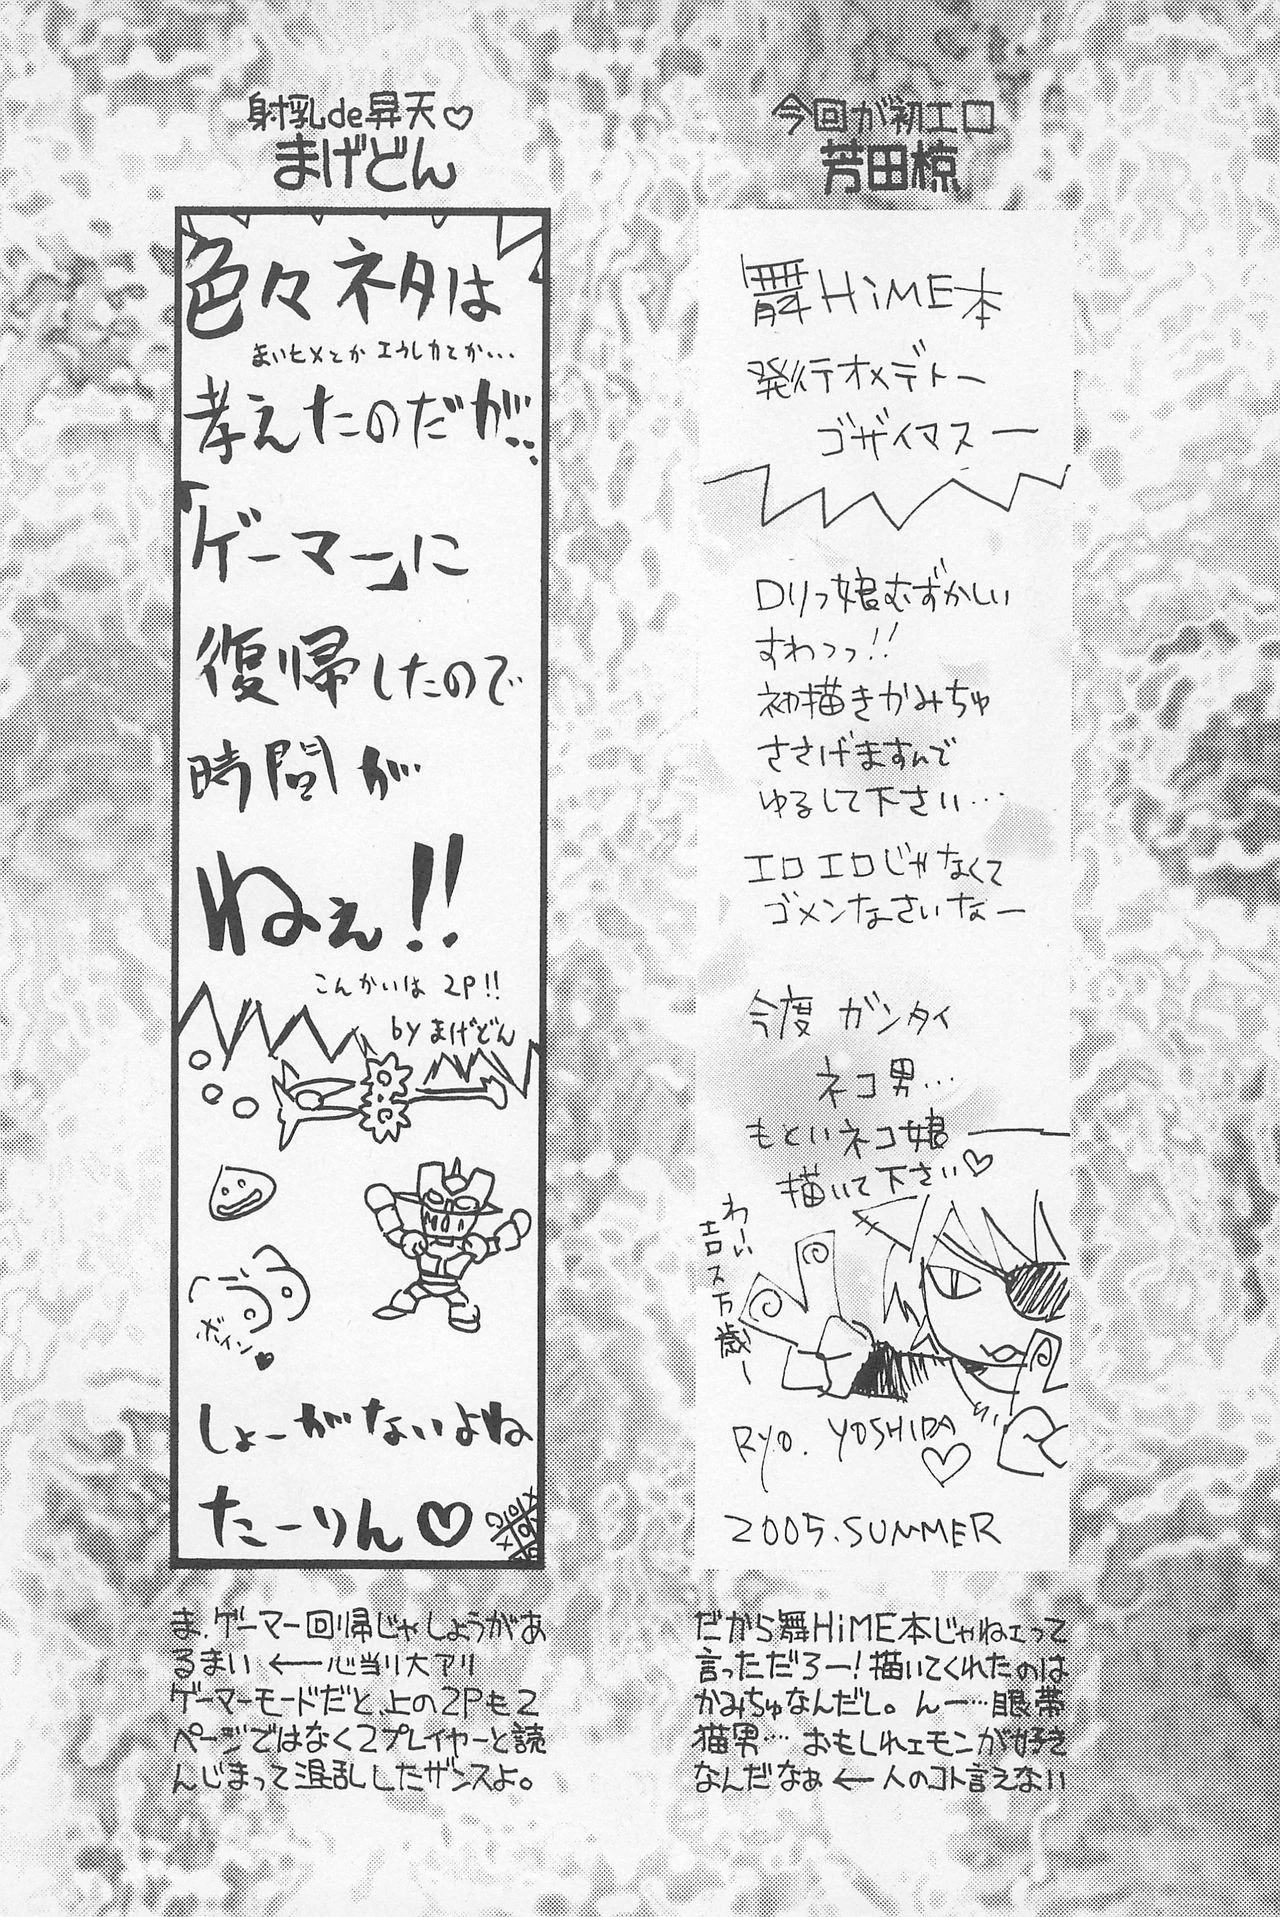 今回が初エロ
芳田椋
舞HiME本
発行オメデトー
ゴザイマスー
ロリっ娘むずかしい
すわっっ!!
初描きかみちゅ
ささげますんで
ゆるして下さい…
エロエロじゃなくて
ゴメンなさいなー
今度 ガンタイ
ネコ男…
もといネコ娘
描いて下さい♡
わーい
エロス万歳ー
RYO. YOSHIDA
♡
2005.SUMMER
だから舞HiME本じゃねェって
言っただろー!描いてくれたのは
かみちゅなんだし。んー…眼帯
猫男…おもしれェモンが好き
なんだなぁ←人のコト言えない
射乳de昇天♡
まげどん
色々ネタは
まいヒメとか エウレカとか...
考えたのだが..
「ゲーマー」に
復帰したので
時間が
ねぇ!!
こんかいは 2P!!
by まげどん
ボイン♥
しょーがないよね
たーりん♡
ま、ゲーマー回帰じゃしょうがあ
るまい ←心当り大アリ
ゲーマーモードだと、上の2Pも2
ページではなく2プレイヤーと読
んじまって混乱したザンスよ。